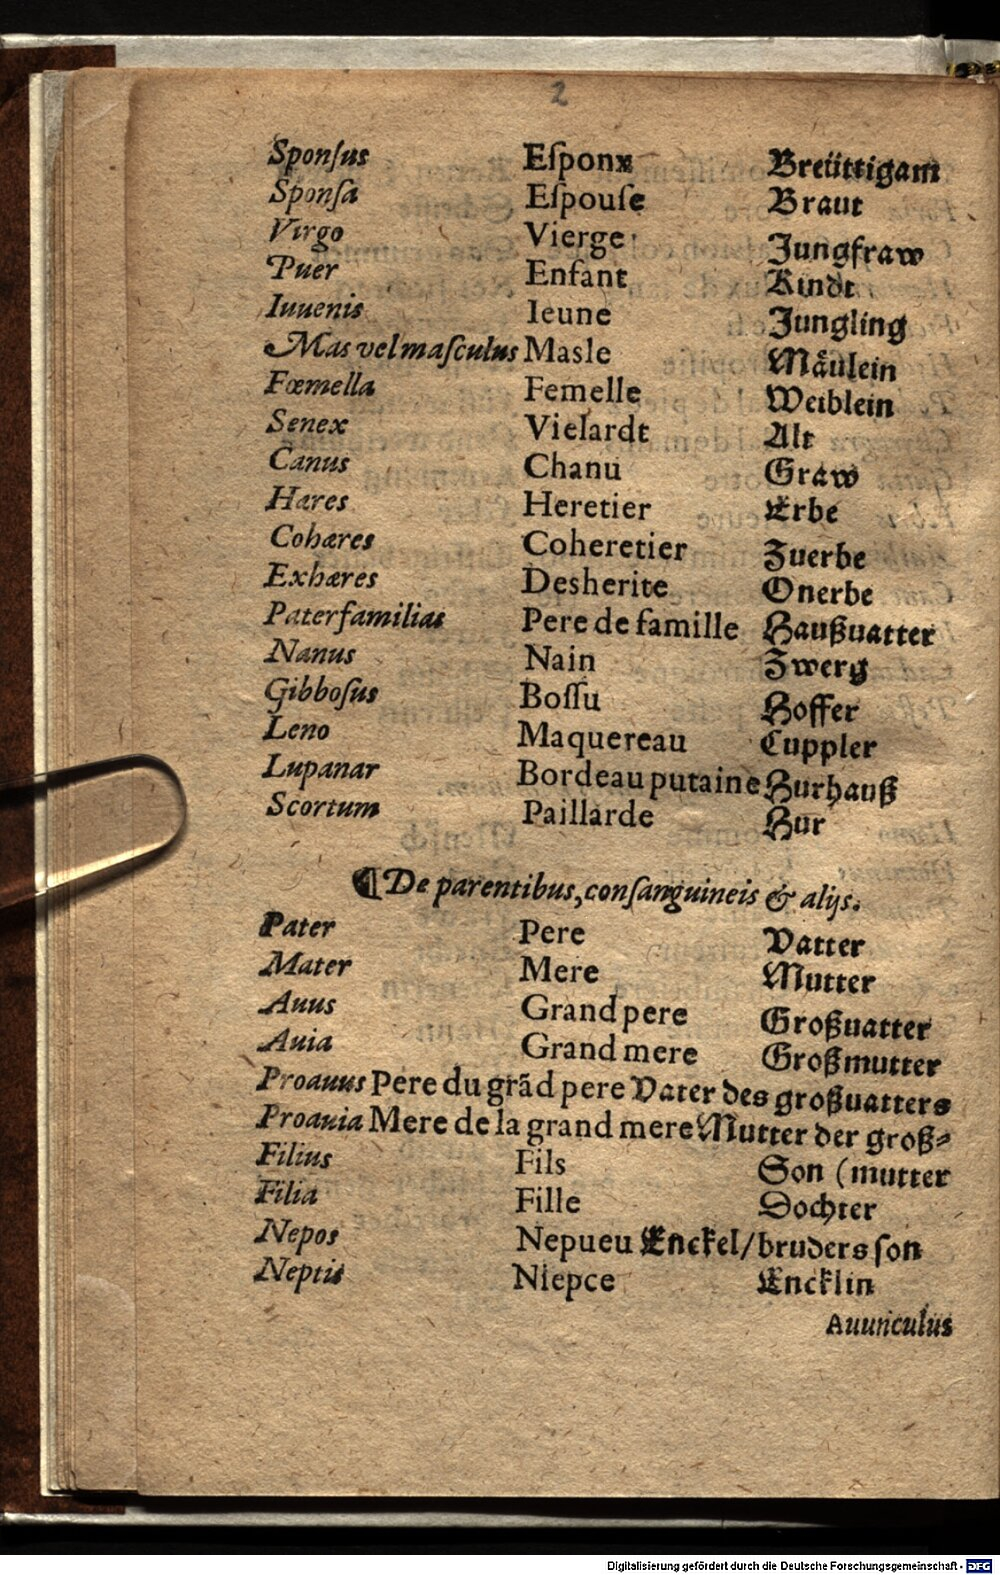 2
Sponſus Eſponx Breüttigam
Sponſa Eſpouſe Braut
Virgo Vierge Jungfraw
Puer Enfant Kindt
Iuuenis Ieune Jungling
Mas vel maſculus Masle Mäulein
Fœmella Femelle Weiblein
Senex Vielardt Alt
Canus Chanu Graw
Hæres Heretier Erbe
Cohæres Coheretier Zuerbe
Exhæres Desherite Onerbe
Paterfamilias Pere de famille Haußuatter
Nanus Nain Zwerg
Gibboſus Boſſu Hoffer
Leno Maquereau Cuppler
Lupanar Bordeau putaine Hurhauß
Scortum Paillarde Hur
¶ De parentibus, conſanguineis & alijs.
Pater Pere Vatter
Mater Mere Mutter
Auus Grand pere Großuatter
Auia Grand mere Großmutter
Proauus Pere du grãd pere Vater des großuatters
Proauia Mere de la grand mere Mutter der groß⸗
Filius Fils Son (mutter
Filia Fille Dochter
Nepos Nepueu Enckel/bruders ſon
Neptis Niepce Encklin
Auunculus
Digitalisierung gefördert durch die Deutsche Forschungsgemeinschaft - DFG